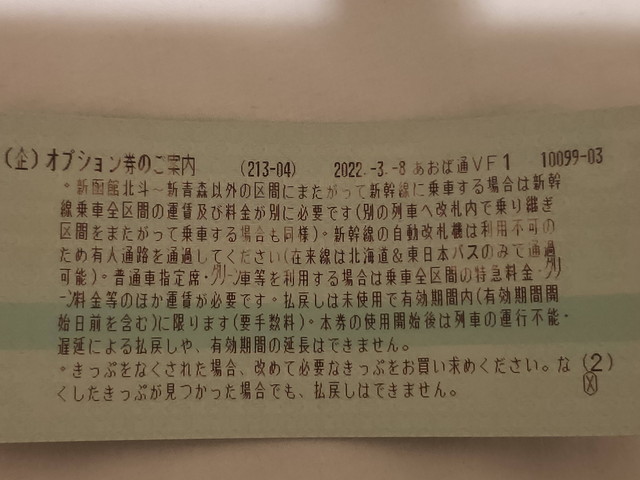 (企)オプション券のご案内 (213-04) 2022.-3.-8 あおば通VF1 10099-03
*新函館北斗〜新青森以外の区間にまたがって新幹線に乗車する場合は新幹
線乗車全区間の運賃及び料金が別に必要です(別の列車へ改札内で乗り継ぎ
区間をまたがって乗車する場合も同様)。新幹線の自動改札機は利用不可のた
め有人通路を通過してください(在来線は北海道&東日本パスのみで通過
可能)。普通車指定席・グリーン車等を利用する場合は乗車全区間の特急料金・グリ
ーン料金等のほか運賃が必要です。払戻しは未使用で有効期間内(有効期間開
始日前を含む)に限ります(要手数料)。本券の使用開始後は列車の運行不能・
遅延による払戻しや、有効期間の延長はできません。
*きっぷをなくされた場合、改めて必要なきっぷをお買い求めください。な (2)
くしたきっぷが見つかった場合でも、払戻しはできません。